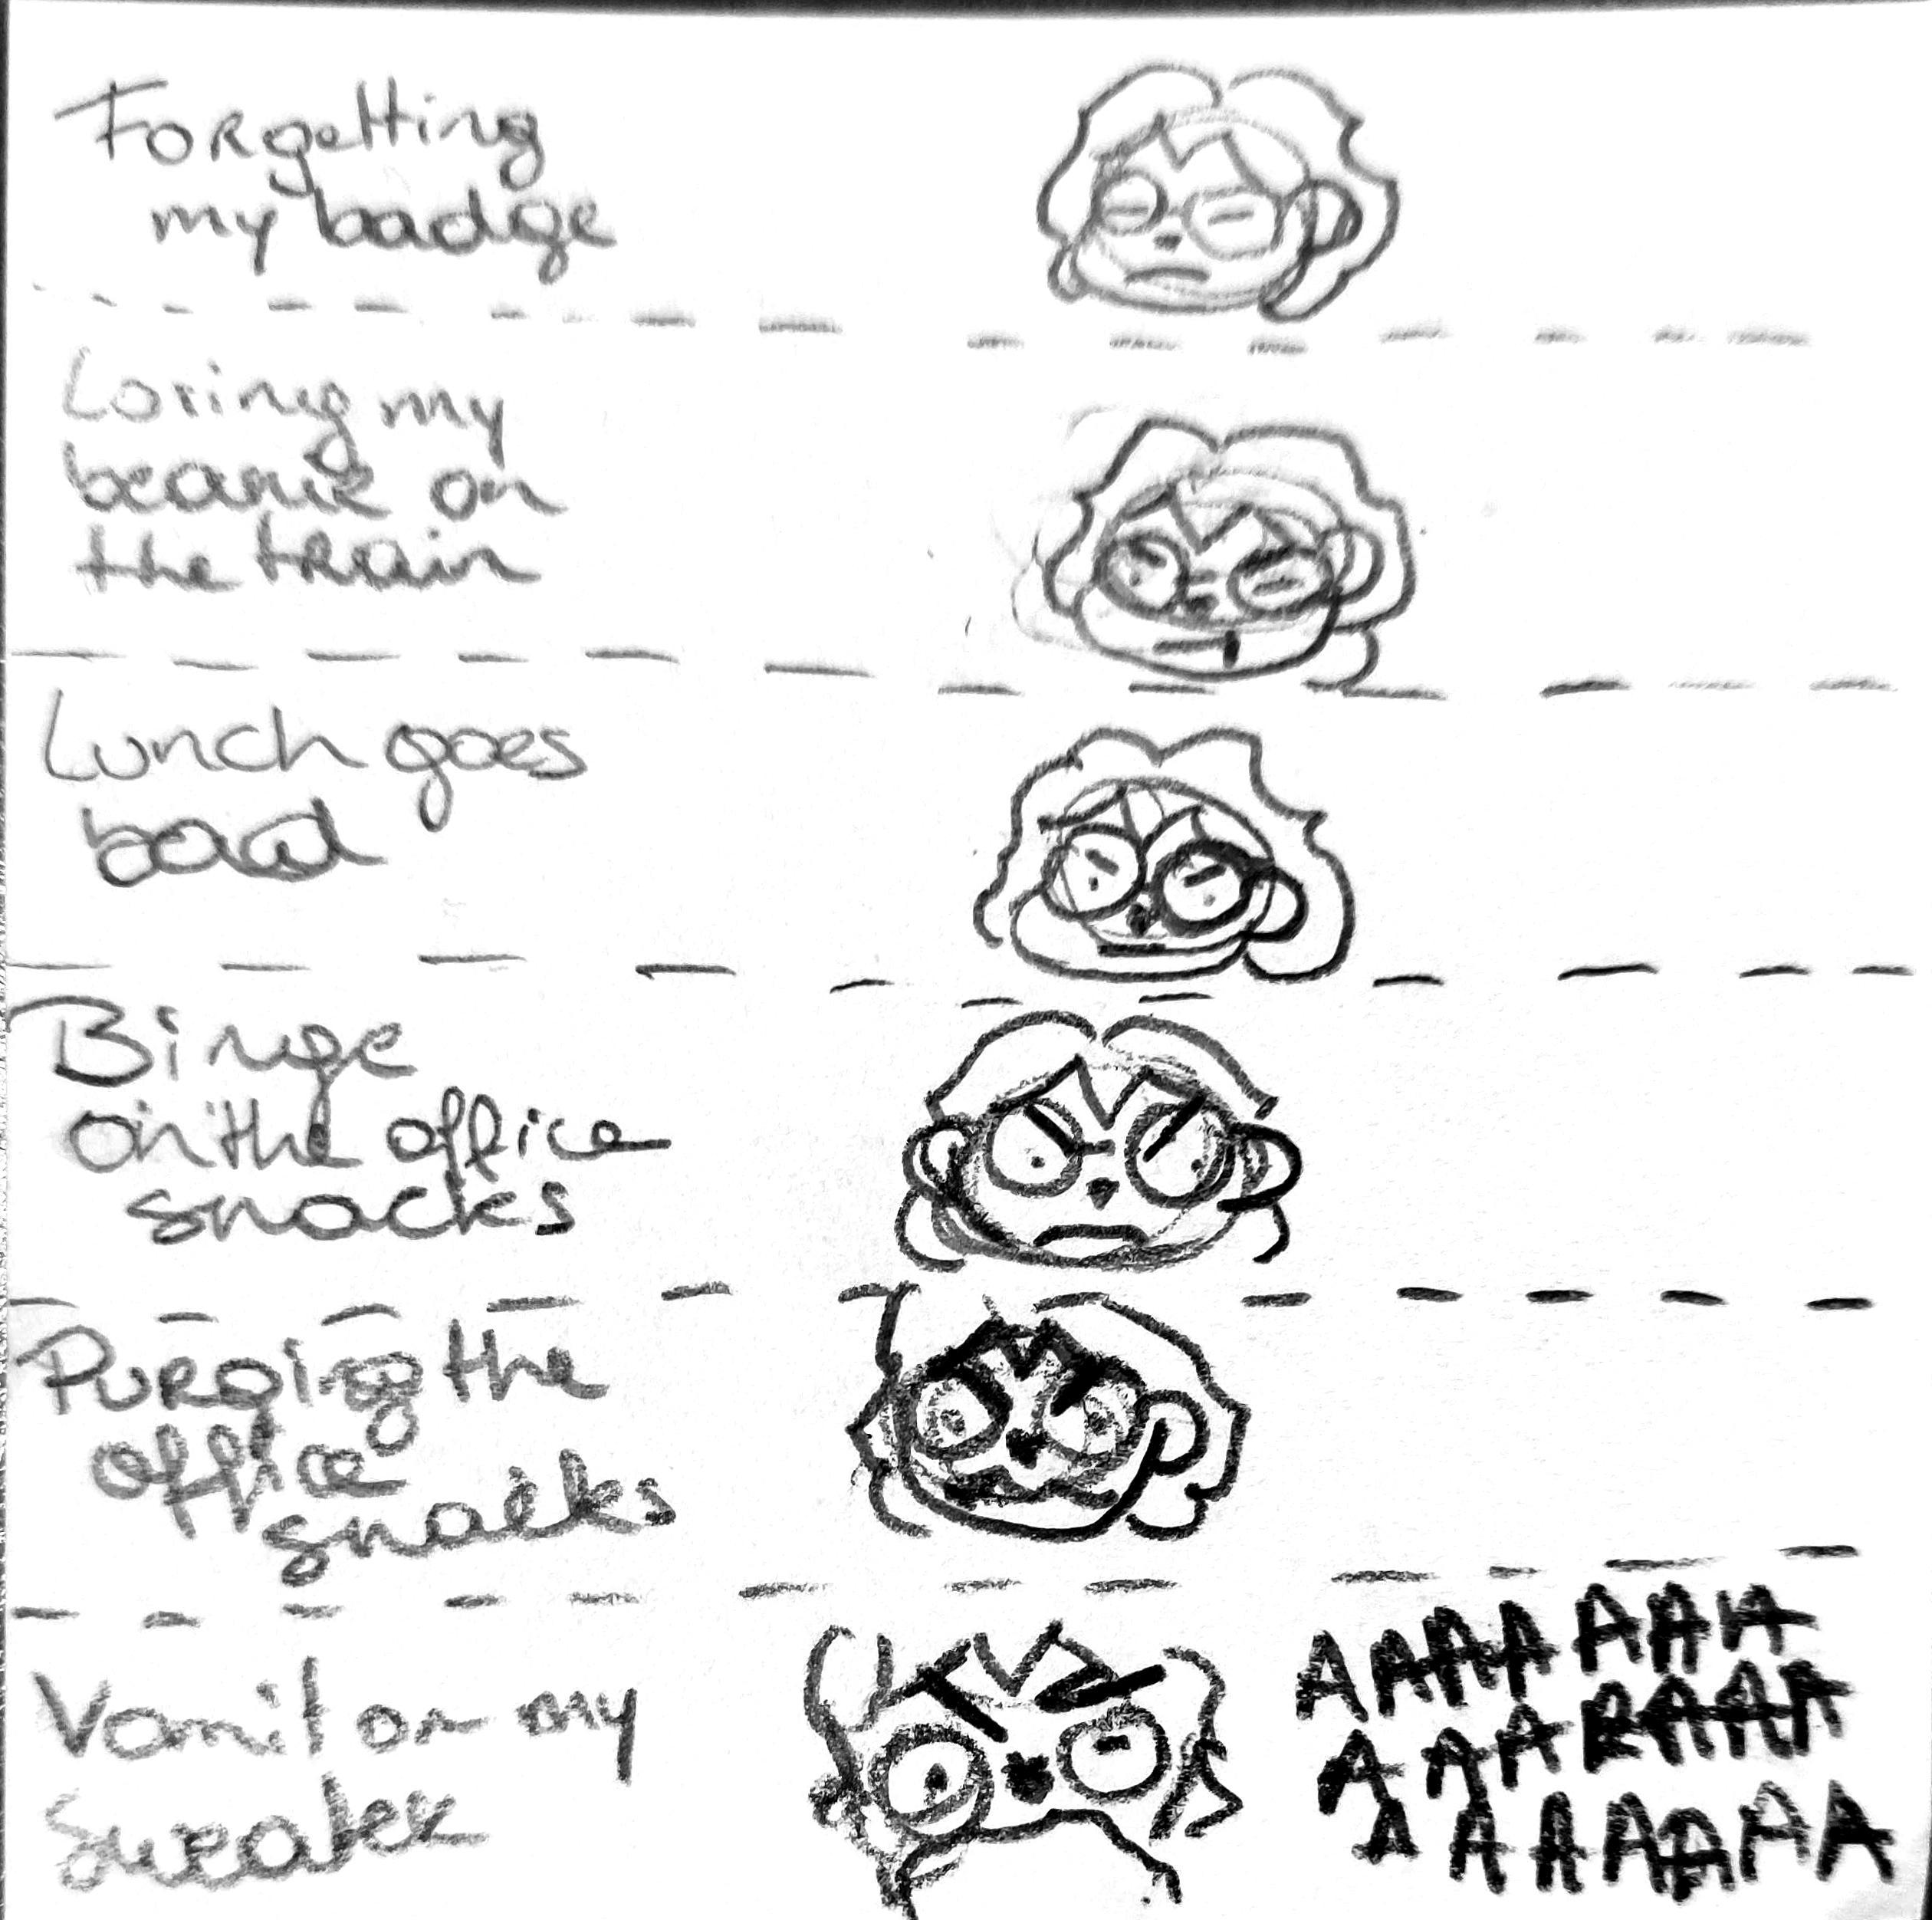 Forgetting
my badge
Losing my
beanie on
the train
Lunch goes
bad
Binge
on the office
snacks
Purging the
office
snacks
Vomit on my
sweater
AAAAAAA
AAARAAA
AAAAAAA